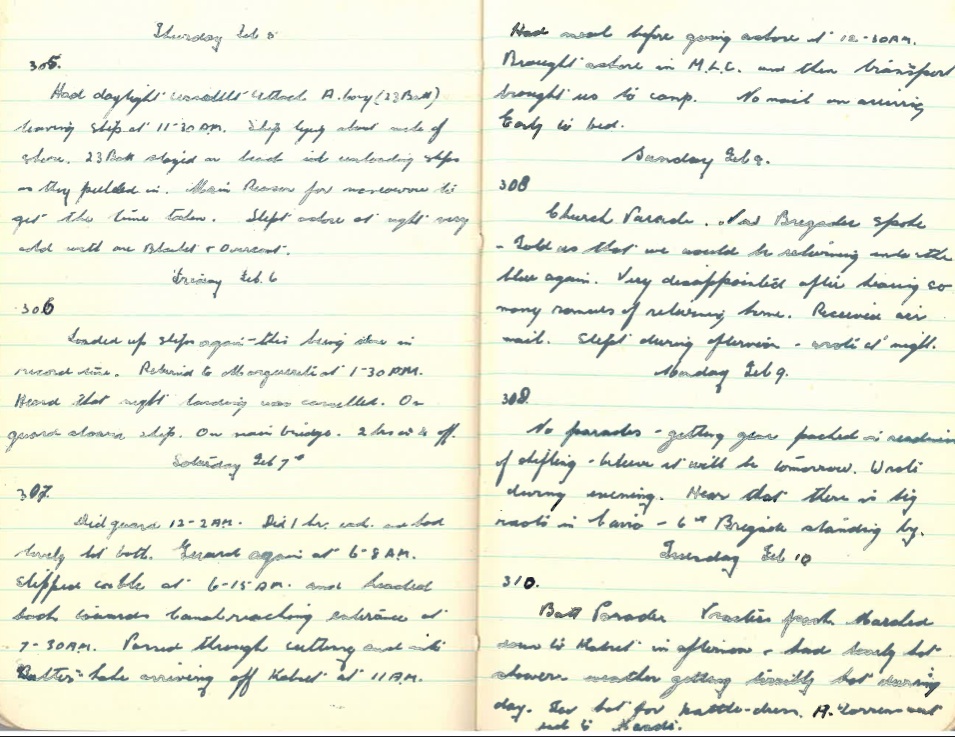 Thursday Feb 5
305.
Had daylight attack A. Coy (23 Batt)
leaving ship at 11-30 A.M. Ship lying about mile of
shore. 23 Batt stayed on beach and unloading ships
as they pulled in. Main Reason for manoeuvre to
get the time taken. Slept ashore at night very
cold with one Blanket & Overcoat.
Friday Feb. 6
306
Loaded up ships again - this being done in
record time. Returned to at 1-30 P.M.
Heard that night landing was cancelled. On
guard ship. On main bridge. 2 hrs on 4 off.
Saturday Feb 7th
307.
Did guard 12-2 A.M. Did 1 hr. and had
lovely hot bath. Guard again at 6-8 A.M.
Slipped cable at 6-15 A.M. and headed
back towards Canal reaching entrance at
7-30 A.M. Passed through cutting and into
Bitter Lake arriving off Kabret at 11 A.M.
Had meal before going ashore at 12-30 A.M.
Brought ashore in M.L.C. and then transport
brought us to camp. No mail on arriving
Early to bed.
Sunday Feb 9.
308
Church Parade. Brigader spoke
- Told us that we would be returning into the
blue again. Very disappointed after hearing so
many rumours of returning home. Received air
mail. Slept during afternoon - wrote at night.
Monday Feb 9.
308.
No parades - getting gear packed in readiness
of shifting - believe it will be tomorrow. Wrote
during evening. Hear that there is big
riots in Cairo - 6th Brigade standing by.
Tuesday Feb 10
310.
Batt Parades Marched
down to Kabret in afternoon & had lovely hot
showers weather getting terribly hot during
day. Too hot for battle-dress. A. went
to Maadi.